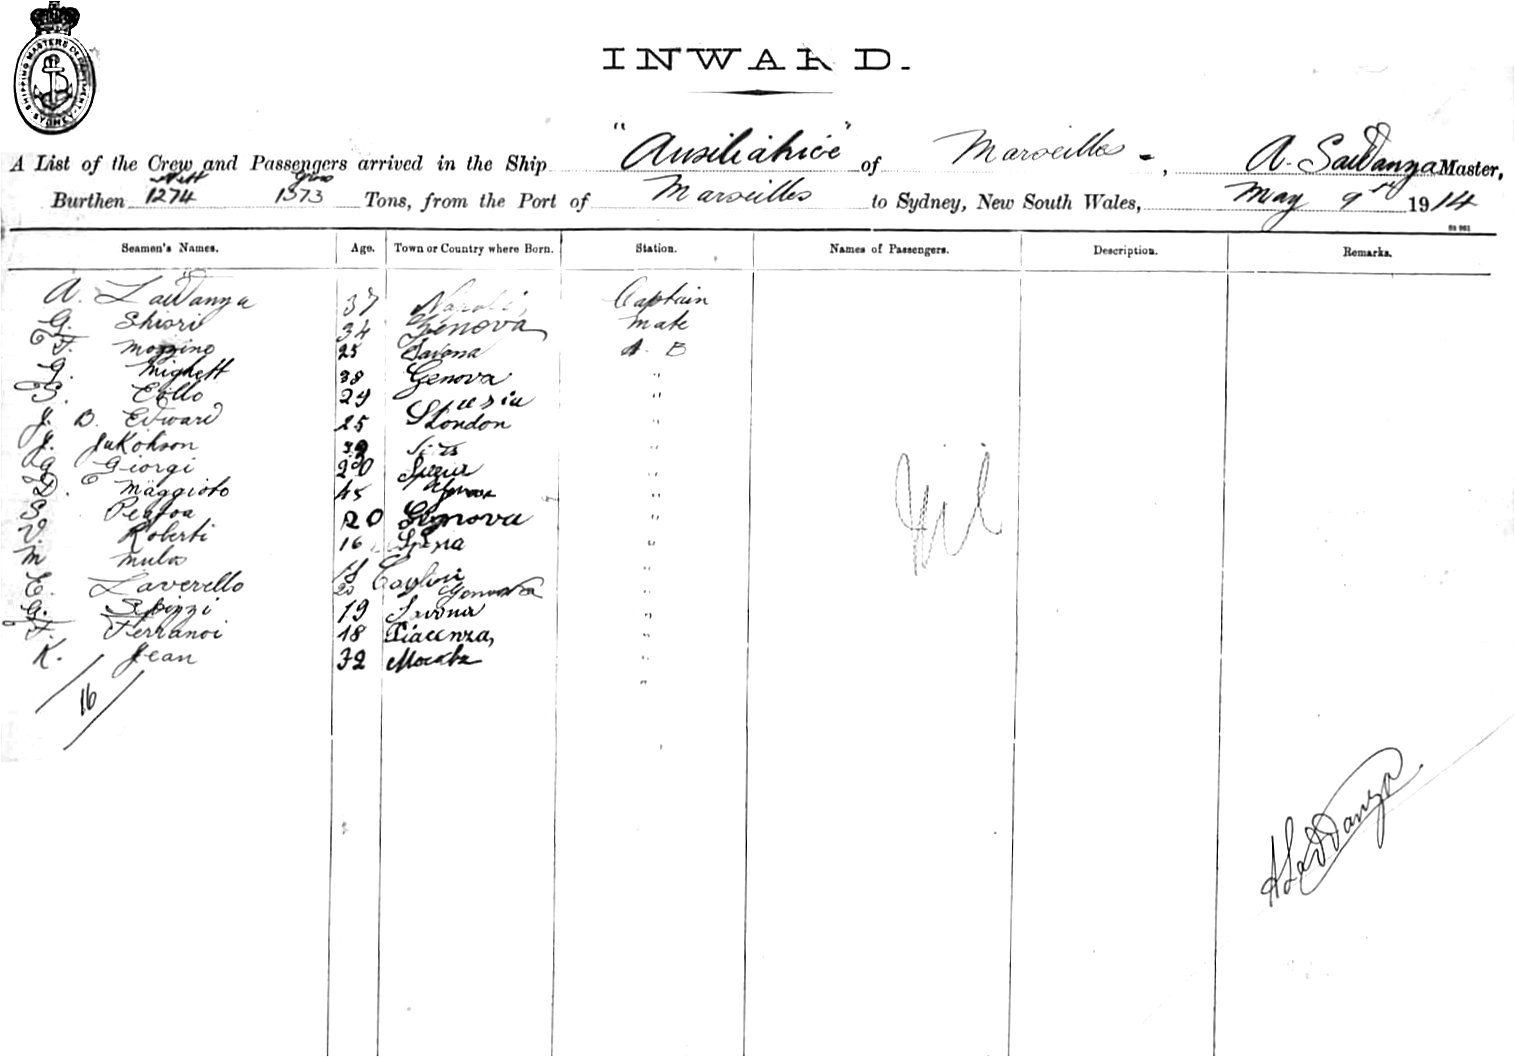 SHIPPING MASTERS DEPARTMENT SYDNEY
INWARD.
A List of the Crew and Passengers arrived in the Ship "Ausiliatrice" of Marseilles, A. Master,
Burthen Nett 1274 Gross 1373 Tons, from the Port of Marseilles to Sydney, New South Wales, May 9 1914
Seamen's Names. Age. Town or Country where Born. Station. Names of Passengers. Description. Remarks.
A. 37 Napoli, Captain
G. Shiori 34 Genova Mate
F. Mozzino 25 Savona A. B
G. Mighett 38 Genova "
S. Collo 29 Spezia "
J. B. Edward 25 London "
J. Jakohson "
G Giorgi 20 Spezia "
D. Maggioto 45 Genova "
S. 20 Genova "
V. Roberti 16 "
M "
E. Laverello 20 Genova "
G. 19 Savona "
F. Ferranoi 18 Piacenza, "
K. Jean 32 "
16
Nil